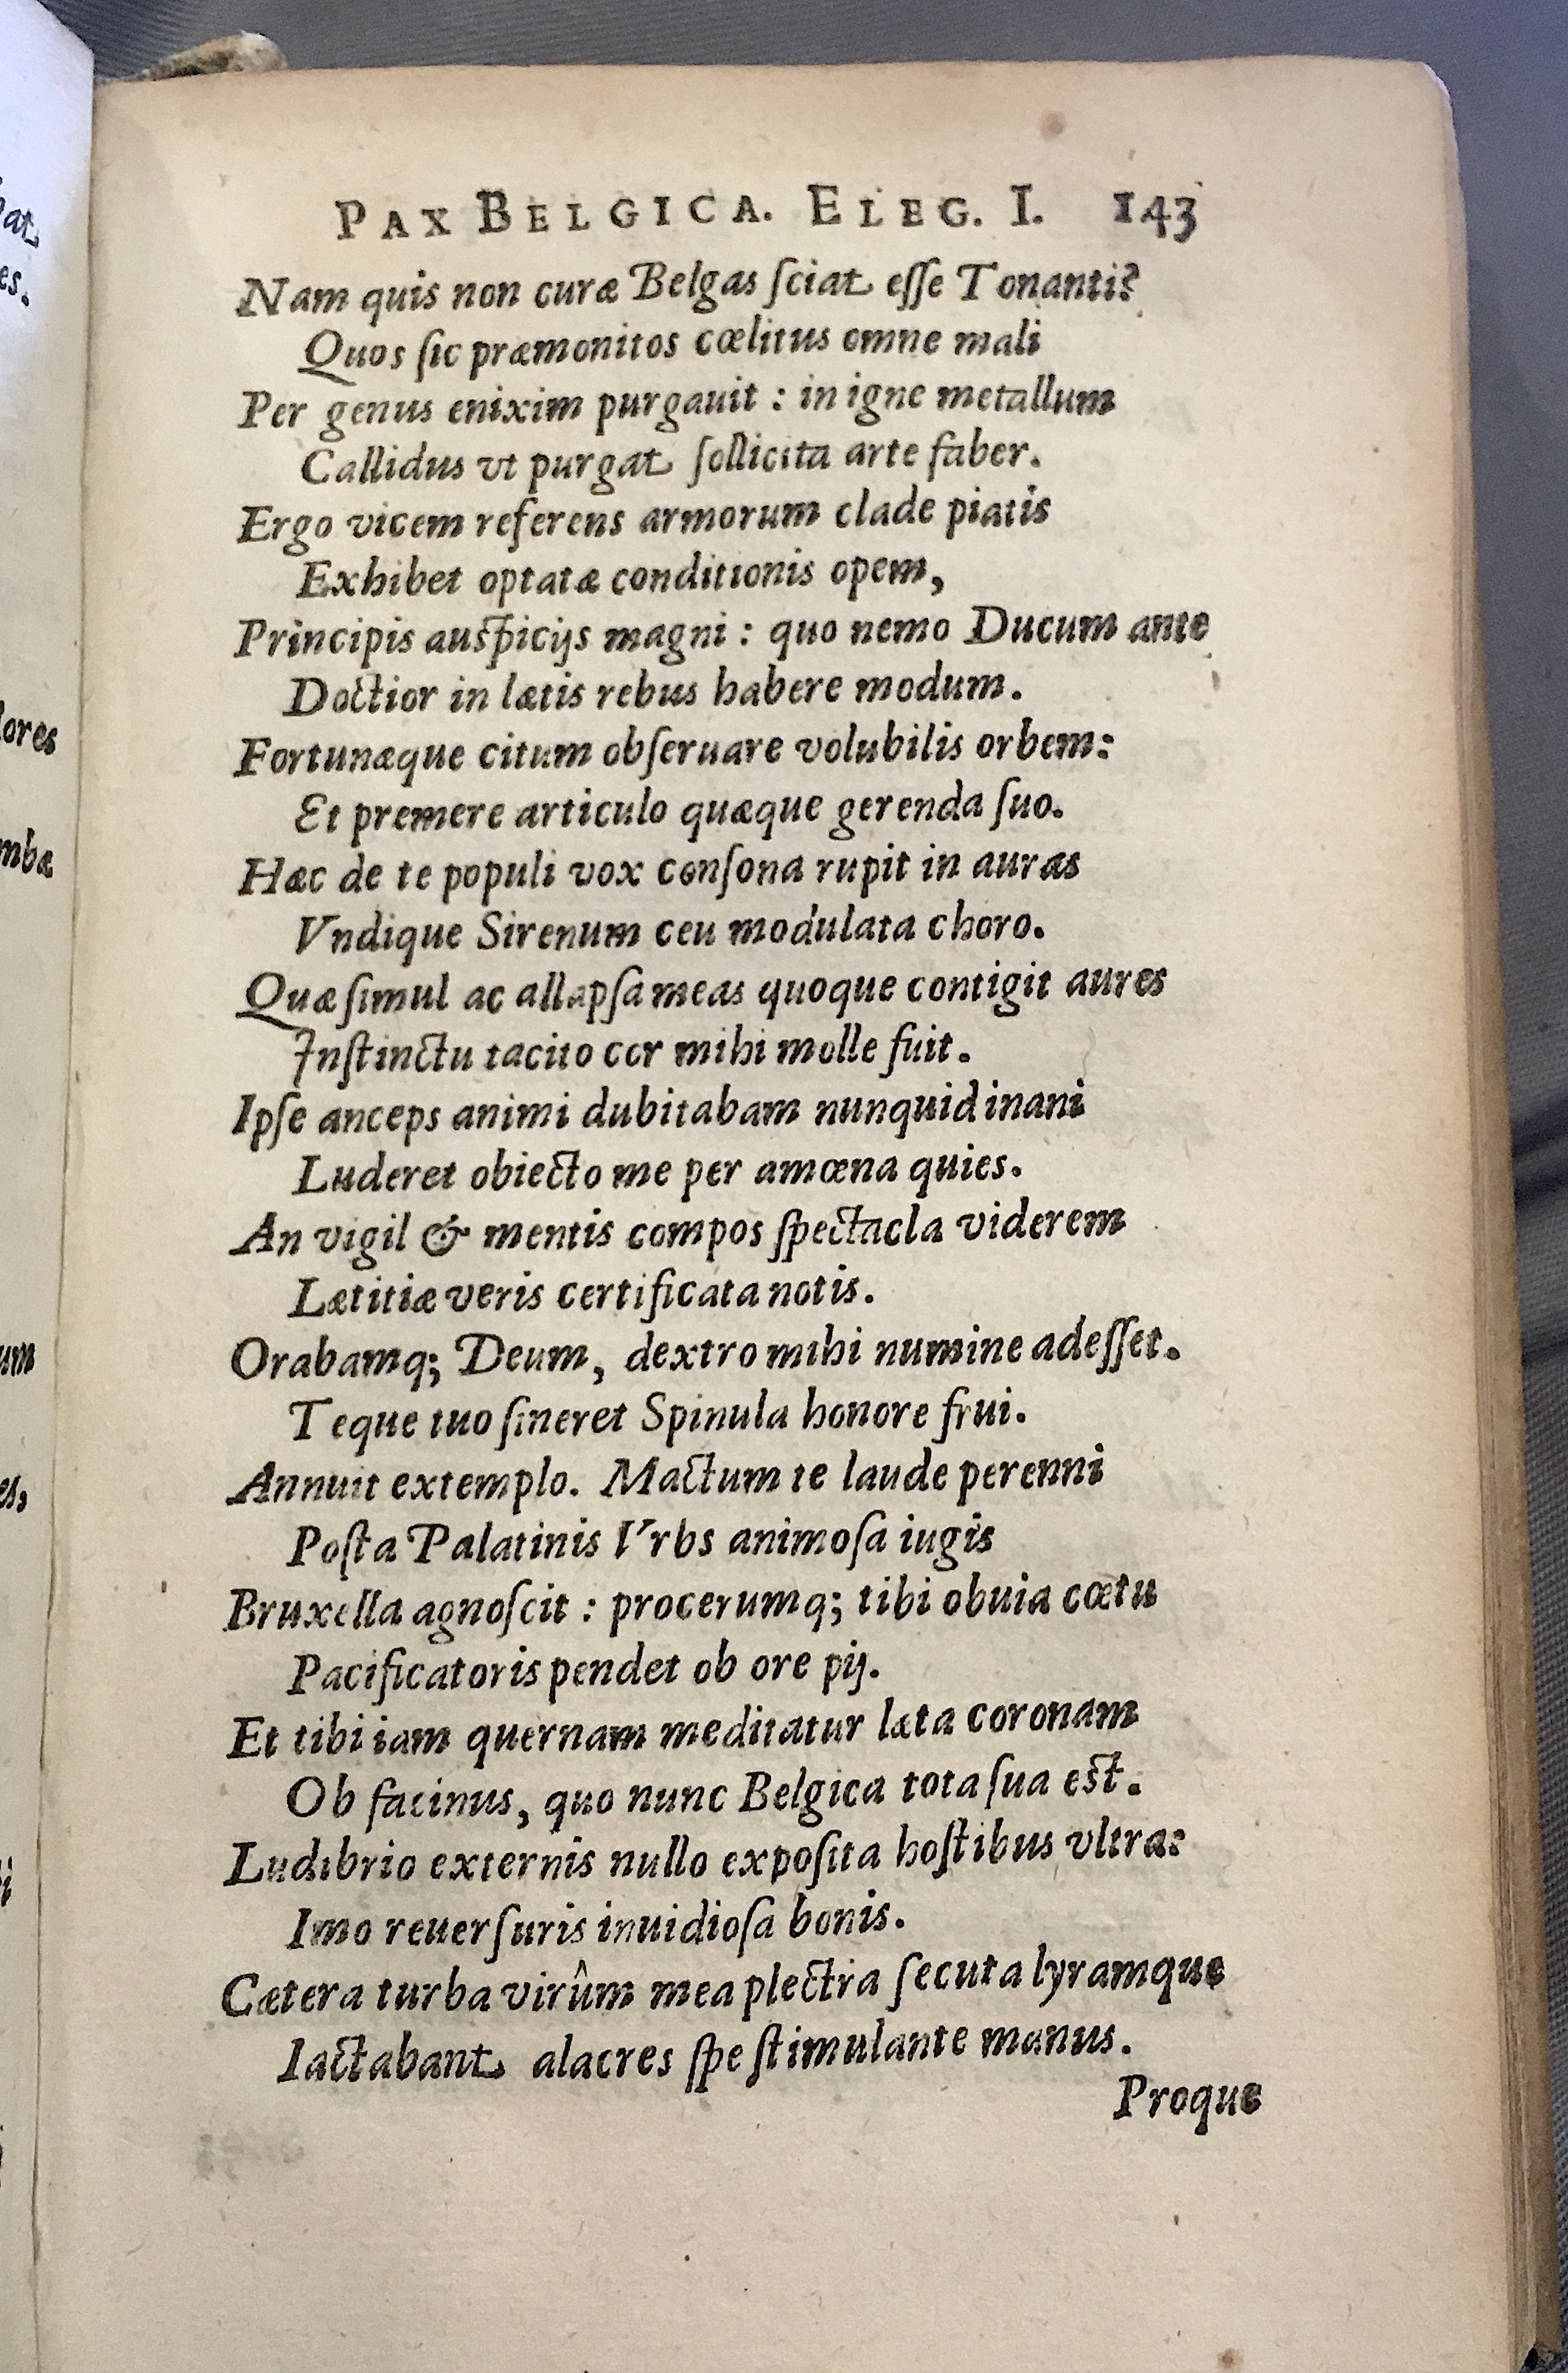 PAX BELGICA. ELEG. I. 143
Nam quis non curæ Belgas ſciat eſſe Tonanti?
Quos ſic præmonitos cœlitus omne mali
Per genus enixim purgauit : in igne metallum
Callidus vt purgat ſollicita arte faber.
Ergo vicem referens armorum clade piatis
Exhibet optatæ conditionis opem,
Principis auſpicijs magni : quo nemo Ducum ante
Doctior in lætis rebus habere modum.
Fortunæque citum obſeruare volubilis orbem:
Et premere articulo quæque gerenda ſuo.
Hæc de te populi vox conſona rupit in auras
Vndique Sirenum ceu modulata choro.
Quæ ſimul ac allapſa meas quoque contigit aures
Inſtinctu tacito cor mihi molle fuit.
Ipſe anceps animi dubitabam nunquid inani
Luderet obiecto me per amœna quies.
An vigil & mentis compos ſpectacla viderem
Lætitiæ veris certificata notis.
Orabamq; Deum, dextro mihi numine adeſſet.
Teque tuo ſineret Spinula honore frui.
Annuit extemplo. Mactum te laude perenni
Poſta Palatinis Vrbs animoſa iugis
Bruxella agnoſcit : procerumq; tibi obuia cœtu
Pacificatoris pendet ob ore pij.
Et tibi iam quernam meditatur læta coronam
Ob facinus, quo nunc Belgica tota ſua eſt.
Ludibrio externis nullo expoſita hoſtibus vltra:
Imo reuerſuris inuidioſa bonis.
Cætera turba virûm mea plectra ſecuta lyramque
Iactabant alacres ſpe ſtimulante manus.
Proque